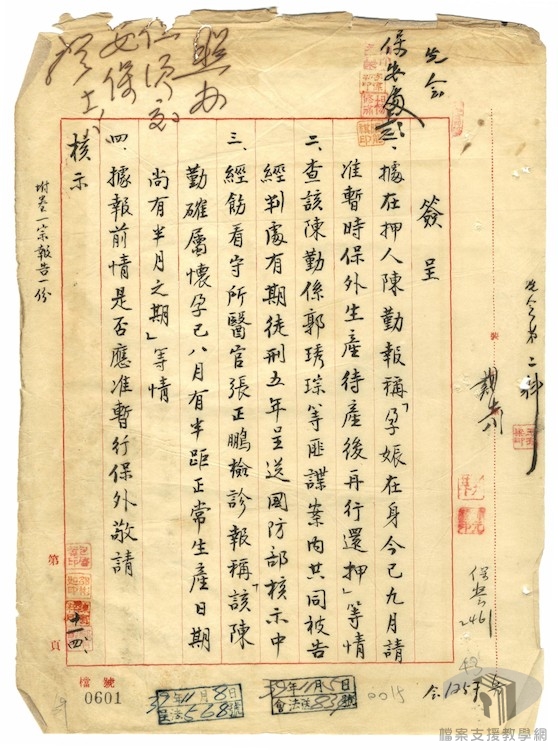 先會
保安處
簽呈
一、據在押人陳勤報稱「孕娠在身今已九月請
准暫時保外生產待產後再行還押」等情
二、查該陳勤係郭琇琮等匪諜案內共同被告
經判處有期徒刑五年呈送國防部核示中
三、經飭看守所醫官張正鵬檢診報稱「該陳
勤確屬懷孕已八月有半距正常生產日期
尚有半月之期」等情
四、據報前情是否應准暫行保外敬請
核示
附卷一宗報告一份
先會第二科
第
頁
檔號
0601
39年11月8日
39年11月5日
0015
2461
檔案支援教學網